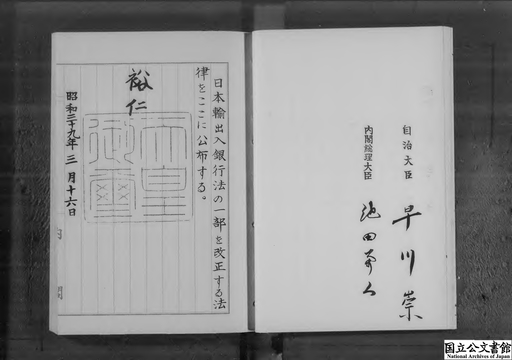 自治大臣 早川崇
内閣総理大臣 池田勇人
日本輸出入銀行法の一部を改正する法
律をここに公布する。
裕仁
天皇御璽
昭和三十九年三月十六日
国立公文書館
National Archives of Japan